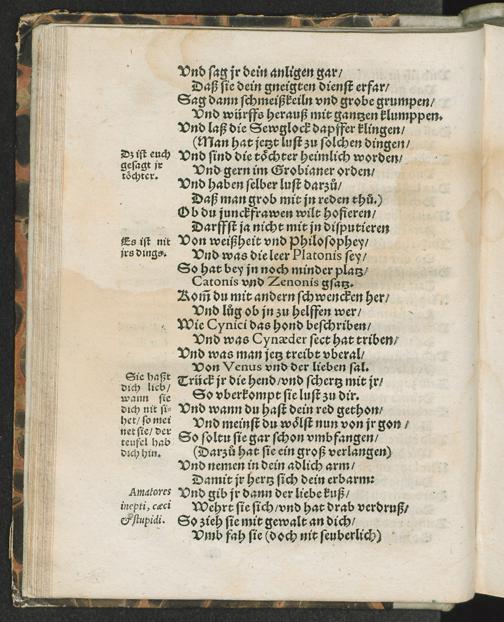 Vnd sag jr dein anligen gar/
Daß sie dein gneigten dienst erfar/
Sag dann schmeißkeiln vnd grobe grumpen/
Vnd würffs herauß mit gantzen klumppen.
Vnd laß die Sewglock dapffer klingen/
(Man hat jetzt lust zu solchen dingen/
Dz ist euch
gesagt jr
töchter.
Vnd sind die töchter heimlich worden/
Vnd gern im Grobianer orden/
Vnd haben selber lust darzů/
Daß man grob mit jn reden thů.)
Ob du junckfrawen wilt hofieren/
Darffst ja nicht mit in disputieren
Es ist nit
jrs dings.
Von weißheit vnd Philosophey/
Vnd was die leer Platonis sey/
So hat bey jn noch minder platz/
Catonis vnd Zenonis gsatz.
Kom̃ du mit andern schwencken her/
Vnd lůg ob jn zu helffen wer/
Wie Cynici das hond beschriben/
Vnd was Cynæder sect hat triben/
Vnd was man jetz treibt vberal/
Von Venus vnd der lieben sal.
Sie haßt
dich lieb/
wann sie
dich nit si-
het/ so mei
net sie/ der
teufel hab
dich hin.
Trück jr die hend/vnd schertz mit jr/
So vberkompt sie lust zu dir.
Vnd wann du hast dein red gethon/
Vnd meinst du wölst nun von jr gon/
So soltu sie gar schon vmbfangen/
(Darzů hat sie ein groß verlangen)
Vnd nemen in dein adlich arm/
Damit jr hertz sich dein erbarm:
Amatores
inepti, cæci
& stupidi.
Vnd gib jr dann der liebe kuß/
Wehrt sie sich/vnd hat drab verdruß/
So zieh sie mit gewalt an dich/
Vmb fah sie (doch nit seuberlich)